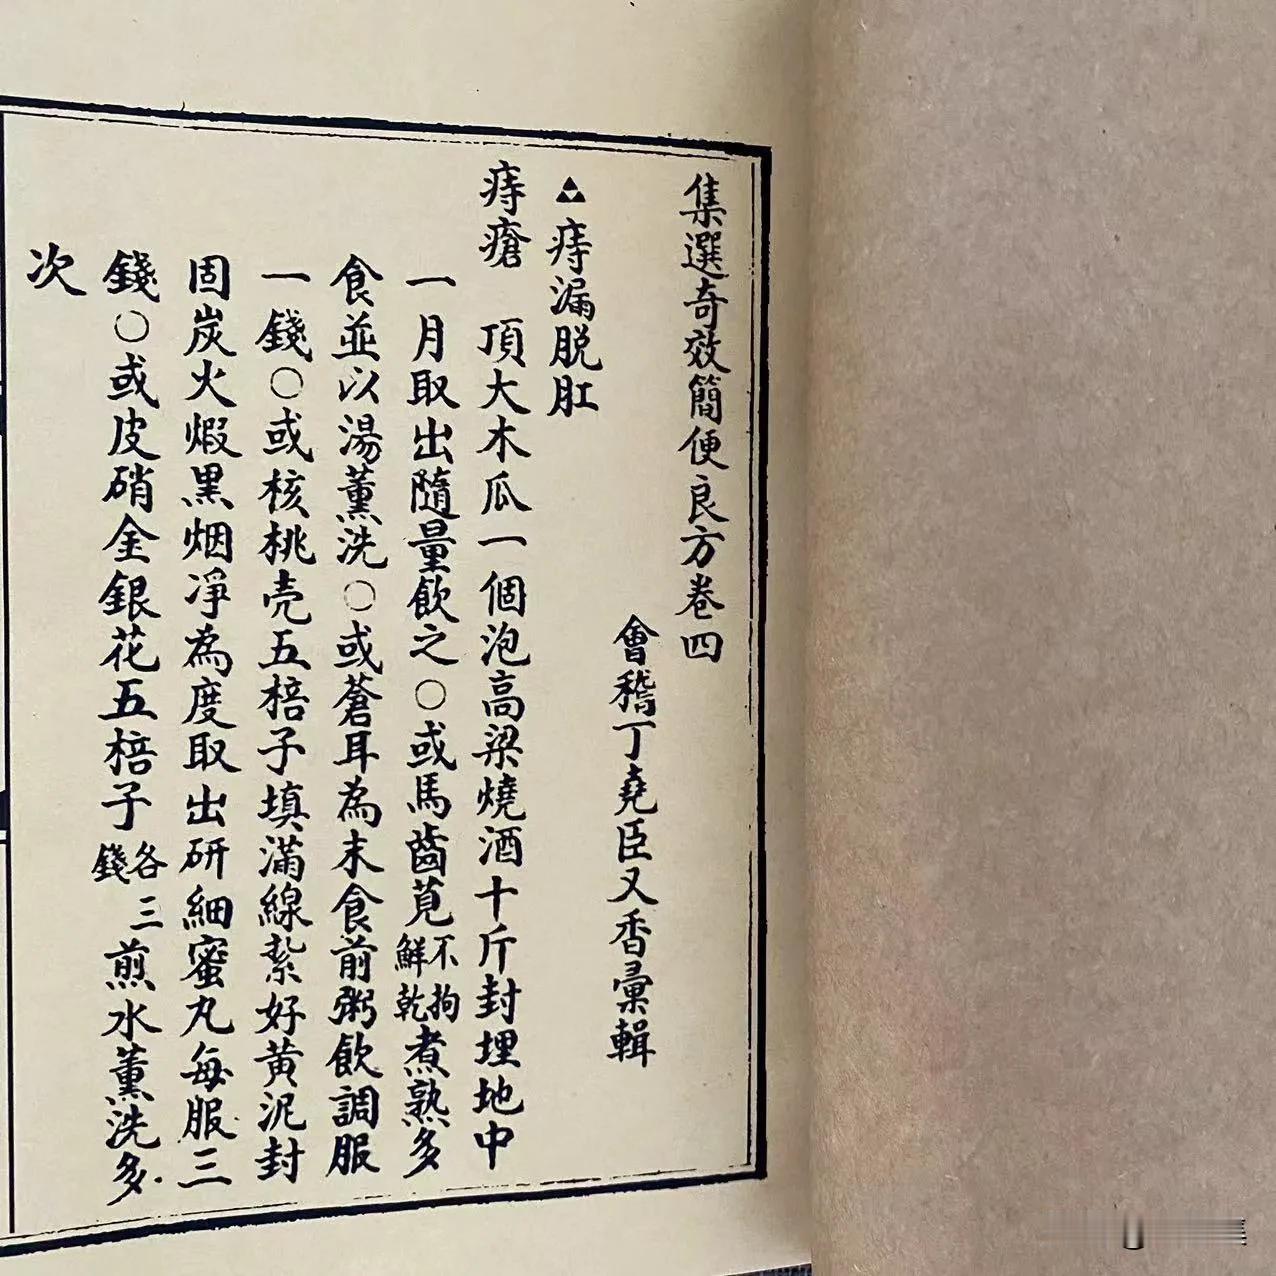 集選奇效簡便良方卷四
會稽丁堯臣又香彙輯
痔漏脱肛
痔瘡 頂大木瓜一個泡高梁燒酒十斤封埋地中
一月取出隨量飲之○或馬齒莧不拘鮮乾煮熟多
食並以湯薰洗○或蒼耳為末食前粥飲調服
一錢○或核桃壳五棓子填滿線紮好黄泥封
固炭火煅黒烟凈為度取出研細蜜丸每服三
錢○或皮硝金銀花五棓子各三錢煎水薰洗多
次